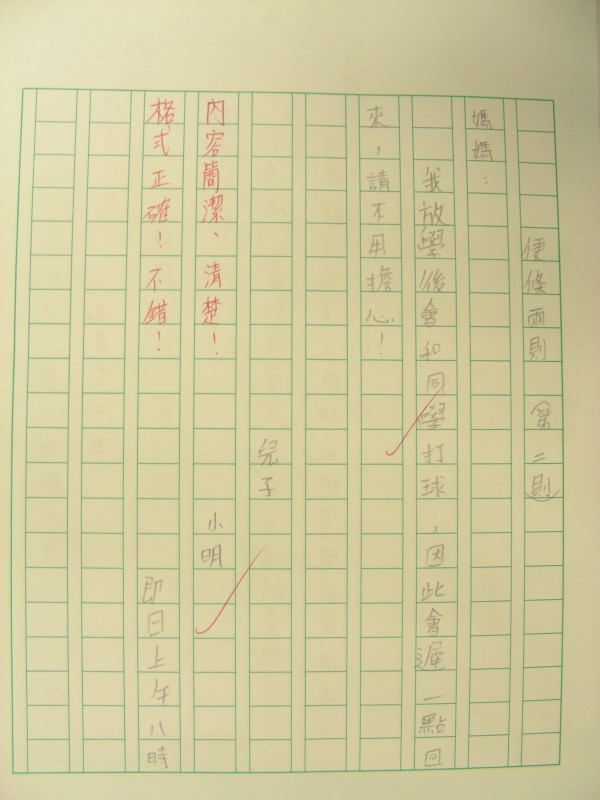 便條兩則 第二則
媽媽：
我放學後會和同學打球，因此會遲一點回
來，請不用擔心！
兒子
小明
即日上午八時
內容簡潔、清楚！
格式正確！不錯！